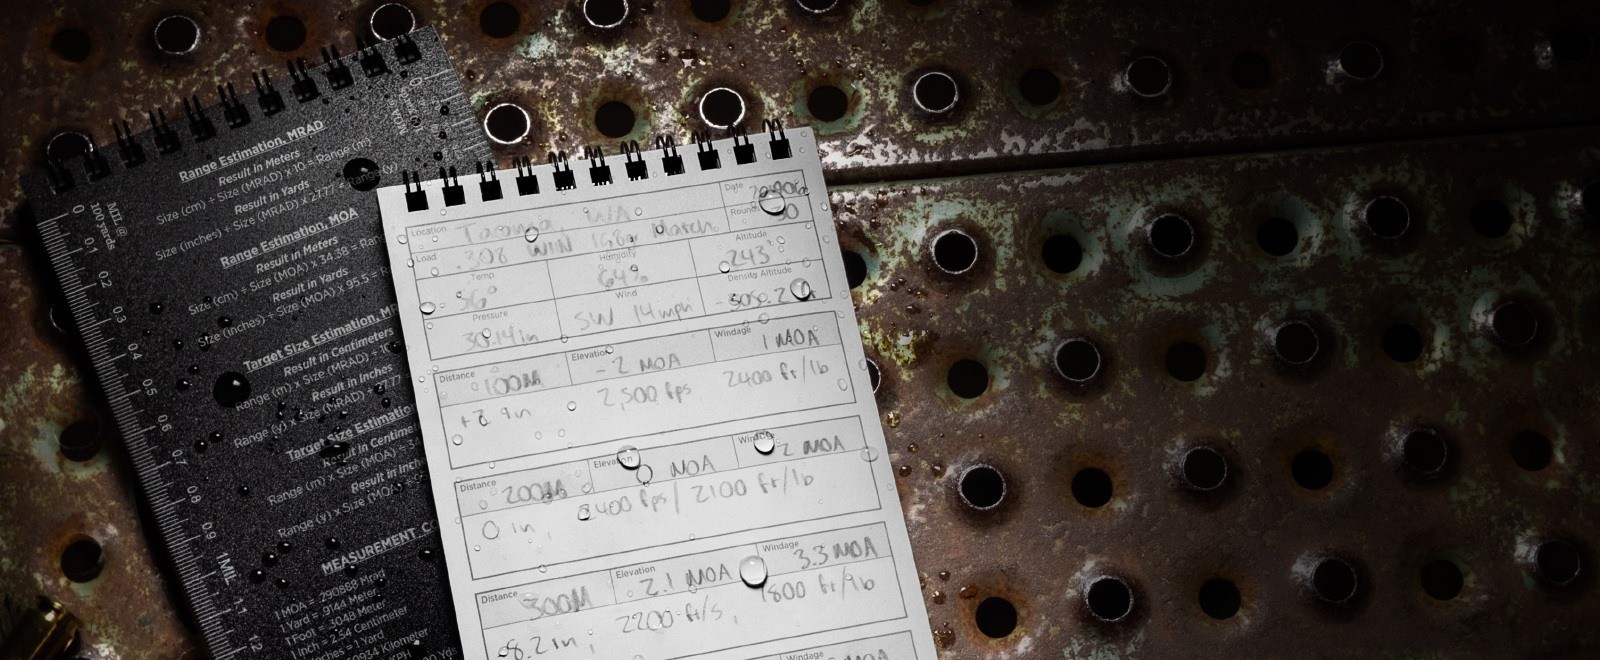 Range Estimation, MRAD
Result in Meters
Size (cm) ÷ Size (MRAD) x 10 = Range (m)
Result in Yards
Size (inches) ÷ Size (MRAD) x 27.77 = (y)
Range Estimation, MOA
Result in Meters
Size (cm) ÷ Size (MOA) x 34.38 = Ran
Result in Yards
Size (inches) ÷ Size (MOA) x 95.5 = R
Target Size Estimation, MR
Result in Centimeters
Range (m) x Size (MRAD) ÷ 10
Result in Inches
Range (y) x Size (MRAD) ÷ 27.77
Target Size Estimatio
Result in Centime
Range (m) x Size (MOA) ÷ 34
Result in Inch
Range (y) x Size (MOA)
MEASUREMENT CO
1 MOA = .290888 Mrad
1 Yard = .9144 Meter
1 Foot = .3048 Meter
1 Inch = 2.54 Centimeter
nches = 1 Yard
MIL @
100 yards
0
01
02
03
04
05
06
07
08
09
1 MIL
11
12
Location Tacoma WA Date
Load .308 WIN 168gr March Round 50
Temp 56° Humidity 64% Altitude 243'
Pressure 30.14in Wind SW 14mph Density Altitude
Distance 100M Elevation -2 MOA Windage 1 MOA
2,500 fps 2400 ft/lb
Distance 200M Elevation 0 MOA Windage 2 MOA
0 in, 2400 fps / 2100 ft/lb
Distance 300M Elevation 2.1 MOA Windage 3.3 MOA
-8.2 in, 2200 ft/s, 1800 ft/lb
Windage
MOA